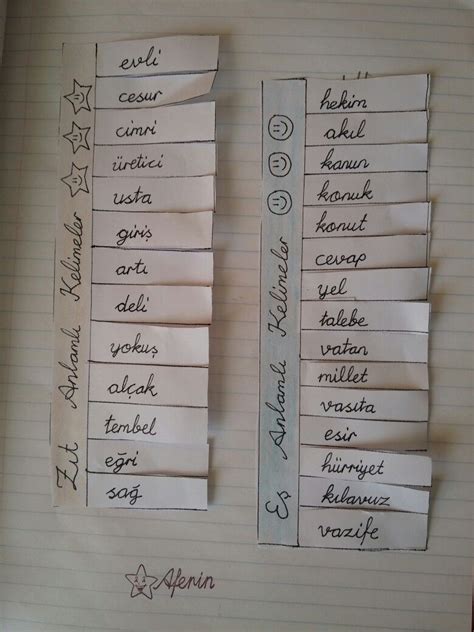 Zıt Anlamlı Kelimeler
evli
cesur
cimri
üretici
usta
giriş
artı
deli
yokuş
alçak
tembel
eğri
sağ
Eş Anlamlı Kelimeler
hekim
akıl
kanun
konuk
konut
cevap
yel
talebe
vatan
millet
vasıta
esir
hürriyet
kılavuz
vazife
Afenin